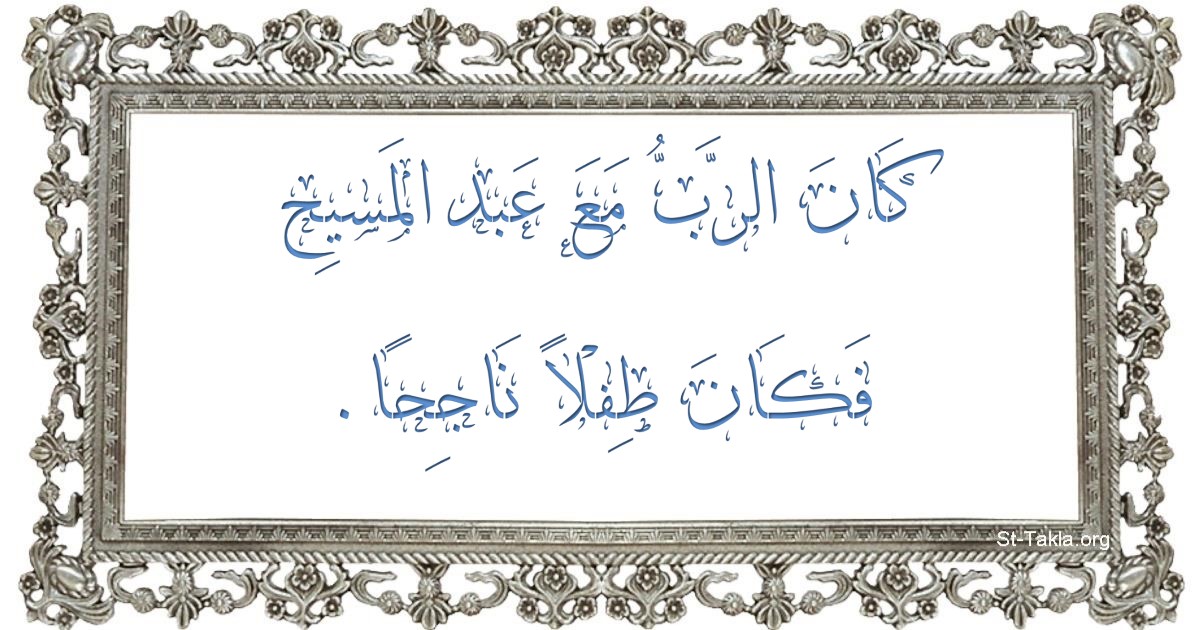 كَانَ الرَّبُّ مَعَ عَبْد الْمَسِيحِ
فَكَانَ طِفْلاً نَاجِحًا .
St-Takla.org